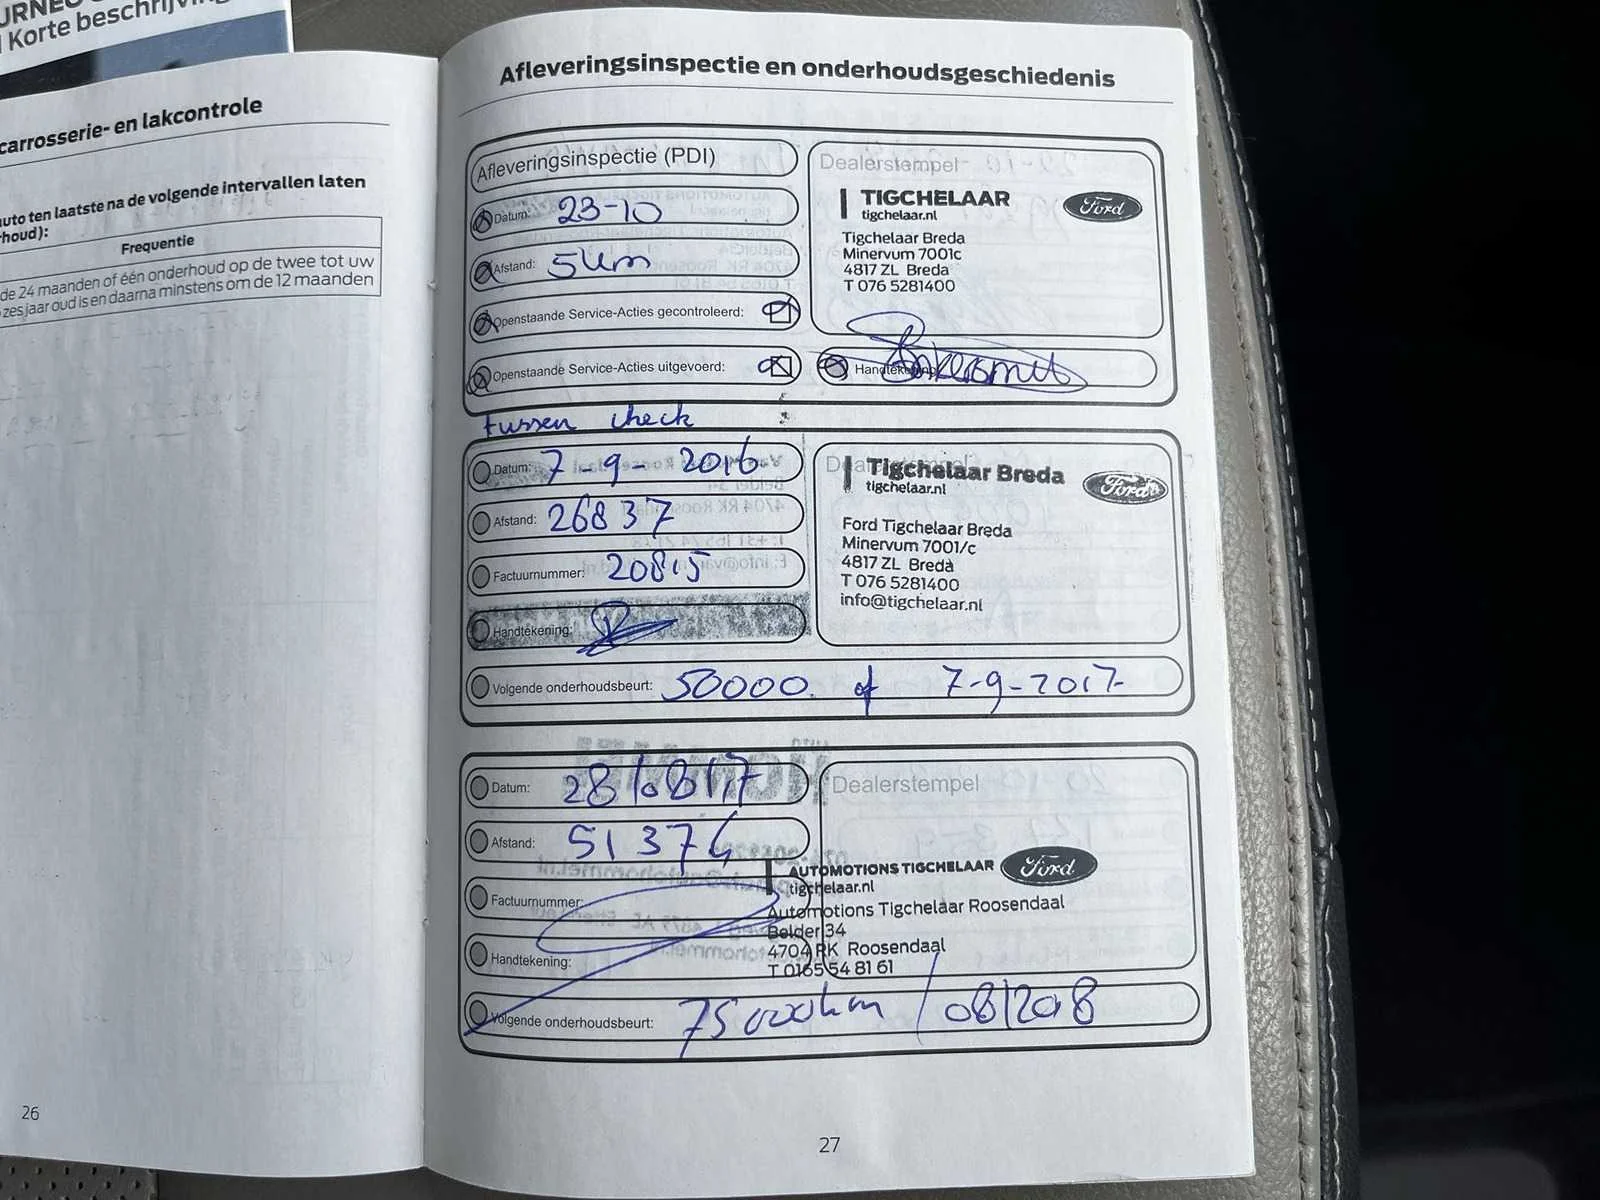 URNEO
Korte beschrijving
carrosserie- en lakcontrole
auto ten laatste na de volgende intervallen laten
rhoud):
Frequentie
de 24 maanden of één onderhoud op de twee tot uw
zes jaar oud is en daarna minstens om de 12 maanden
26
Afleveringsinspectie en onderhoudsgeschiedenis
Afleveringsinspectie (PDI)
Datum: 23-10
Afstand: 5km
Openstaande Service-Acties gecontroleerd:
Openstaande Service-Acties uitgevoerd:
Dealerstempel
TIGCHELAAR
tigchelaar.nl
Ford
Tigchelaar Breda
Minervum 7001c
4817 ZL Breda
T 076 5281400
Handtekening
tussen check
Datum: 7-9-2016
Afstand: 26837
Factuurnummer: 20815
Handtekening:
Tigchelaar Breda
tigchelaar.nl
Ford
Ford Tigchelaar Breda
Minervum 7001/c
4817 ZL Breda
T 076 5281400
info@tigchelaar.nl
Volgende onderhoudsbeurt: 50000. of 7-9-2017
Datum: 28/08/17
Afstand: 51374
Factuurnummer:
Handtekening:
Dealerstempel
AUTOMOTIONS TIGCHELAAR
tigchelaar.nl
Ford
Automotions Tigchelaar Roosendaal
Belder 34
4704 RK Roosendaal
T 0165 54 81 61
Volgende onderhoudsbeurt: 75000km / 08/2018
27